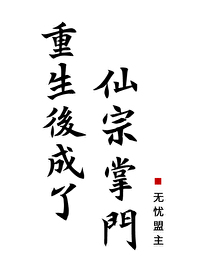 重生後成了
仙宗掌門
无忧盟主